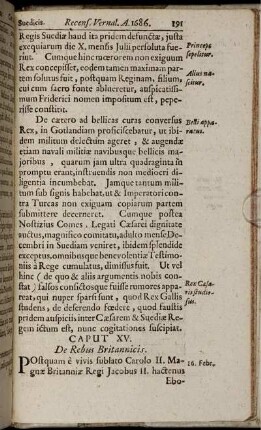 Suedicis. Recens. Vernal. A. 1686. 191
Regis Suediæ haud ita pridem defunctæ, justa
exequiarum die X. mensis Julii persoluta fue-
Princeps
sepelitur.
runt. Cumque hinc mœrorem non exiguum
Rex concepisset, eodem tamen maximam par-
tem solutus fuit, postquam Reginam, filium,
Alius na-
scitur.
cui cum sacro fonte ablueretur, auspicatissi-
mum Friderici nomen impositum est, pepe-
risse constitit.
De cætero ad bellicas curas conversus
Belli appa-
ratus.
Rex, in Gotlandiam proficiscebatur, ut ibi-
dem militum delectum ageret, & augendæ
etiam navali militiæ navibusque bellicis ma-
joribus, quarum jam ultra quadraginta in
promptu erant, instruendis non mediocri di-
ligentia incumbebat. Jamque tantum mili-
tum sub signis habebat, ut & Imperatori con-
tra Turcas non exiguam copiarum partem
submittere decerneret. Cumque postea
Nostizius Comes, Legati Cæsarei dignitate
vectus, magnifico comitatu, adulto mense De-
cembri in Suediam veniret, ibidem splendide
exceptus, omnibusque benevolentiæ Testimo-
niis à Rege cumulatus, dimissus fuit. Ut vel
hinc (de quo & aliis argumentis nobis con-
stat) falsos confictosque fuisse rumores appa-
Rex Cæsa-
ris studio-
sus.
reat, qui nuper sparsi sunt, quod Rex Gallis
studens, de deserendo fœdere, quod faustis
pridem auspiciis inter Cæsarem & Sueciæ Re-
gem ictum est, nunc cogitationes suscipiat.
CAPUT XV.
De Rebus Britannicis.
POstquam è vivis sublato Carolo II. Ma-
16. Febr.
gnæ Britanniæ Regi Jacobus II. hactenus
Ebo-